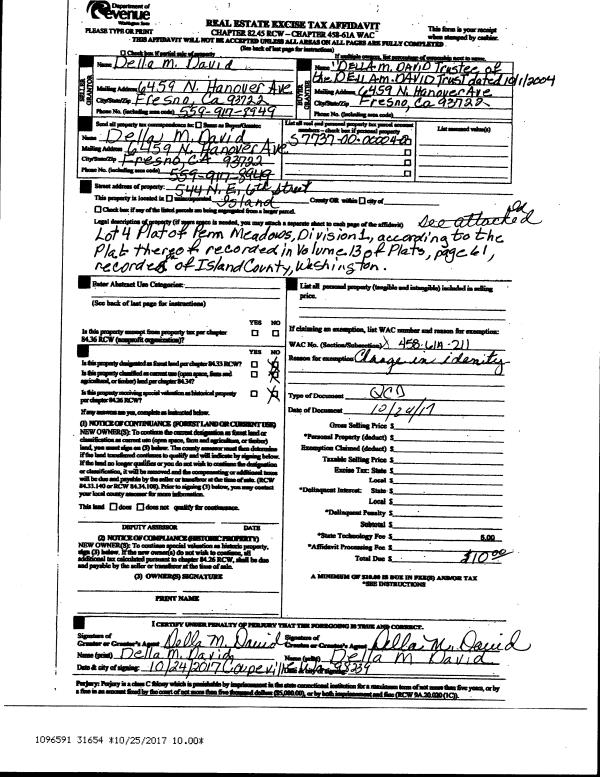 Department of
Revenue
Washington State
PLEASE TYPE OR PRINT
REAL ESTATE EXCISE TAX AFFIDAVIT
CHAPTER 82.45 RCW – CHAPTER 458-61A WAC
This form is your receipt
when stamped by cashier.
THIS AFFIDAVIT WILL NOT BE ACCEPTED UNLESS ALL AREAS ON ALL PAGES ARE FULLY COMPLETED
(See back of last page for instructions)
Check box if partial sale of property
If multiple owners, list percentage of ownership next to name.
SELLER
GRANTOR
Name Della M. David
Mailing Address 6459 N. Hanover Ave
City/State/Zip Fresno, Ca 93722
Phone No. (including area code) 559-917-8949
Name DELLA M. DAVID Trustee of
the DELLA M. DAVID Trust dated 10/1/2004
Mailing Address 6459 N. Hanover Ave
City/State/Zip Fresno, Ca 93722
Phone No. (including area code)
Send all property tax correspondence to: Same as Buyer/Grantee
Name Della M. David
Mailing Address 6459 N. Hanover Ave
City/State/Zip Fresno, CA 93722
Phone No. (including area code) 559-917-8949
List all real and personal property tax parcel account
numbers – check box if personal property
S7737-00-00004-0
List assessed value(s)
Street address of property: 544 N. E. 6th Street
This property is located in unincorporated Island County OR within city of
Check box if any of the listed parcels are being segregated from a larger parcel.
Legal description of property (if more space is needed, you may attach a separate sheet to each page of the affidavit)
See attached
Lot 4 Plat of Penn Meadows, Division 1, according to the
Plat thereof recorded in Volume 13 of Plats, page 61,
records of Island County, Washington.
Enter Abstract Use Categories:
(See back of last page for instructions)
YES NO
Is this property exempt from property tax per chapter
84.36 RCW (nonprofit organization)?
YES NO
Is this property designated as forest land per chapter 84.33 RCW?
Is this property classified as current use (open space, farm and
agricultural, or timber) land per chapter 84.34?
Is this property receiving special valuation as historical property
per chapter 84.26 RCW?
If any answers are yes, complete as instructed below.
(1) NOTICE OF CONTINUANCE (FOREST LAND OR CURRENT USE)
NEW OWNER(S): To continue the current designation as forest land or
classification as current use (open space, farm and agriculture, or timber)
land, you must sign on (3) below. The county assessor must then determine
if the land transferred continues to qualify and will indicate by signing below.
If the land no longer qualifies or you do not wish to continue the designation
or classification, it will be removed and the compensating or additional taxes
will be due and payable by the seller or transferor at the time of sale. (RCW
84.33.140 or RCW 84.34.108). Prior to signing (3) below, you may contact
your local county assessor for more information.
This land does does not qualify for continuance.
DEPUTY ASSESSOR DATE
(2) NOTICE OF COMPLIANCE (HISTORIC PROPERTY)
NEW OWNER(S): To continue special valuation as historic property,
sign (3) below. If the new owner(s) do not wish to continue, all
additional tax calculated pursuant to chapter 84.26 RCW, shall be due
and payable by the seller or transferor at the time of sale.
(3) OWNER(S) SIGNATURE
PRINT NAME
List all personal property (tangible and intangible) included in selling
price.
If claiming an exemption, list WAC number and reason for exemption:
WAC No. (Section/Subsection) 458-61A-211
Reason for exemption Change in idenity
Type of Document QCD
Date of Document 10/24/17
Gross Selling Price $
*Personal Property (deduct) $
Exemption Claimed (deduct) $
Taxable Selling Price $
Excise Tax: State $
Local $
*Delinquent Interest: State $
Local $
*Delinquent Penalty $
Subtotal $
*State Technology Fee $ 5.00
*Affidavit Processing Fee $
Total Due $ $10.00
A MINIMUM OF $10.00 IS DUE IN FEE(S) AND/OR TAX
*SEE INSTRUCTIONS
I CERTIFY UNDER PENALTY OF PERJURY THAT THE FOREGOING IS TRUE AND CORRECT.
Signature of
Grantor or Grantor's Agent Della M. David
Name (print) Della M. David
Date & city of signing: 10/24/2017 Coupeville
Signature of
Grantee or Grantee's Agent Della M. David
Name (print) Della M David
Perjury: Perjury is a class C felony which is punishable by imprisonment in the state correctional institution for a maximum term of not more than five years, or by
a fine in an amount fixed by the court of not more than five thousand dollars ($5,000.00), or by both imprisonment and fine (RCW 9A.20.020 (1C)).
1096591 31654 *10/25/2017 10.00*